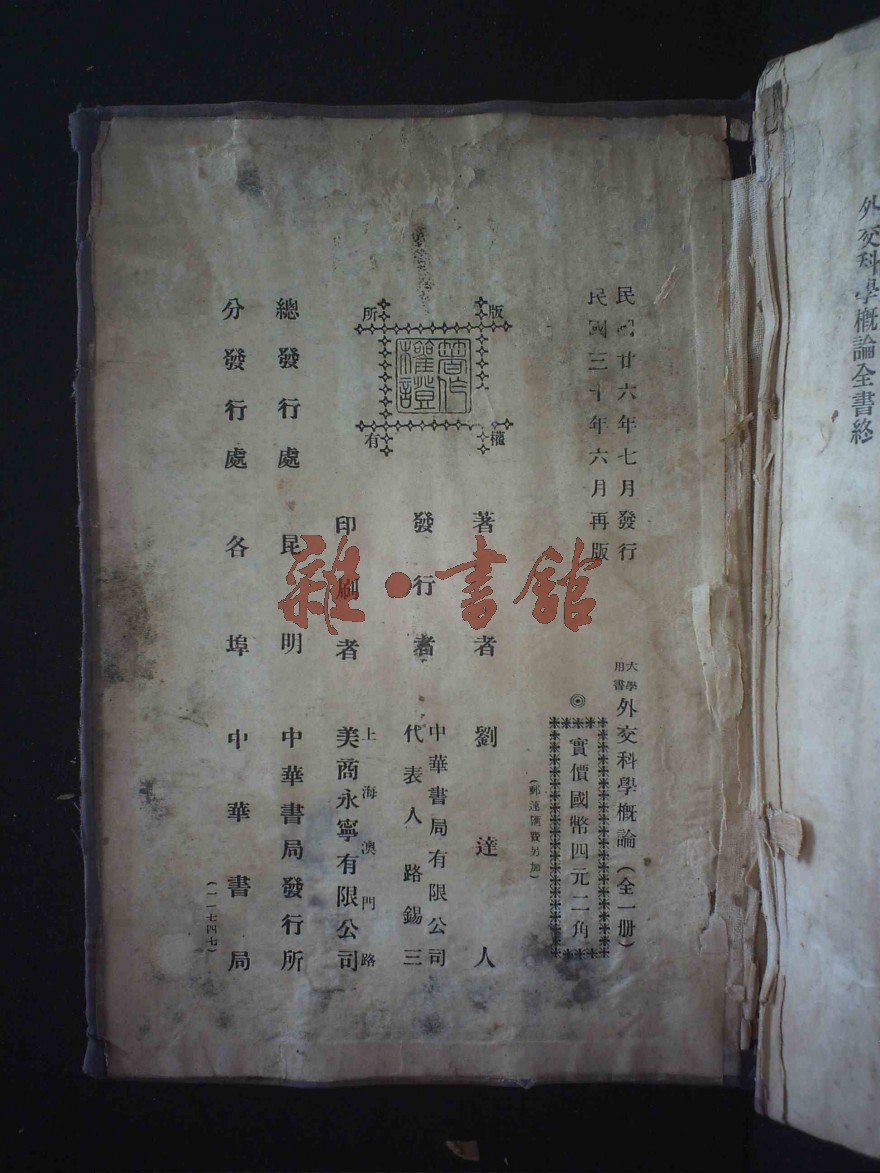 外交科學概論全書終
民國廿六年七月發行
民國三十年六月再版
大學用書
外交科學概論（全一册）
◎實價國幣四元二角
（郵運匯費另加）
版權所有
著作權證
著者 劉達人
發行者 中華書局有限公司
代表人 路錫三
印刷者 上海澳門路
美商永寧有限公司
總發行處 昆明 中華書局發行所
分發行處 各埠 中華書局
（一一七四七）
雜·書館